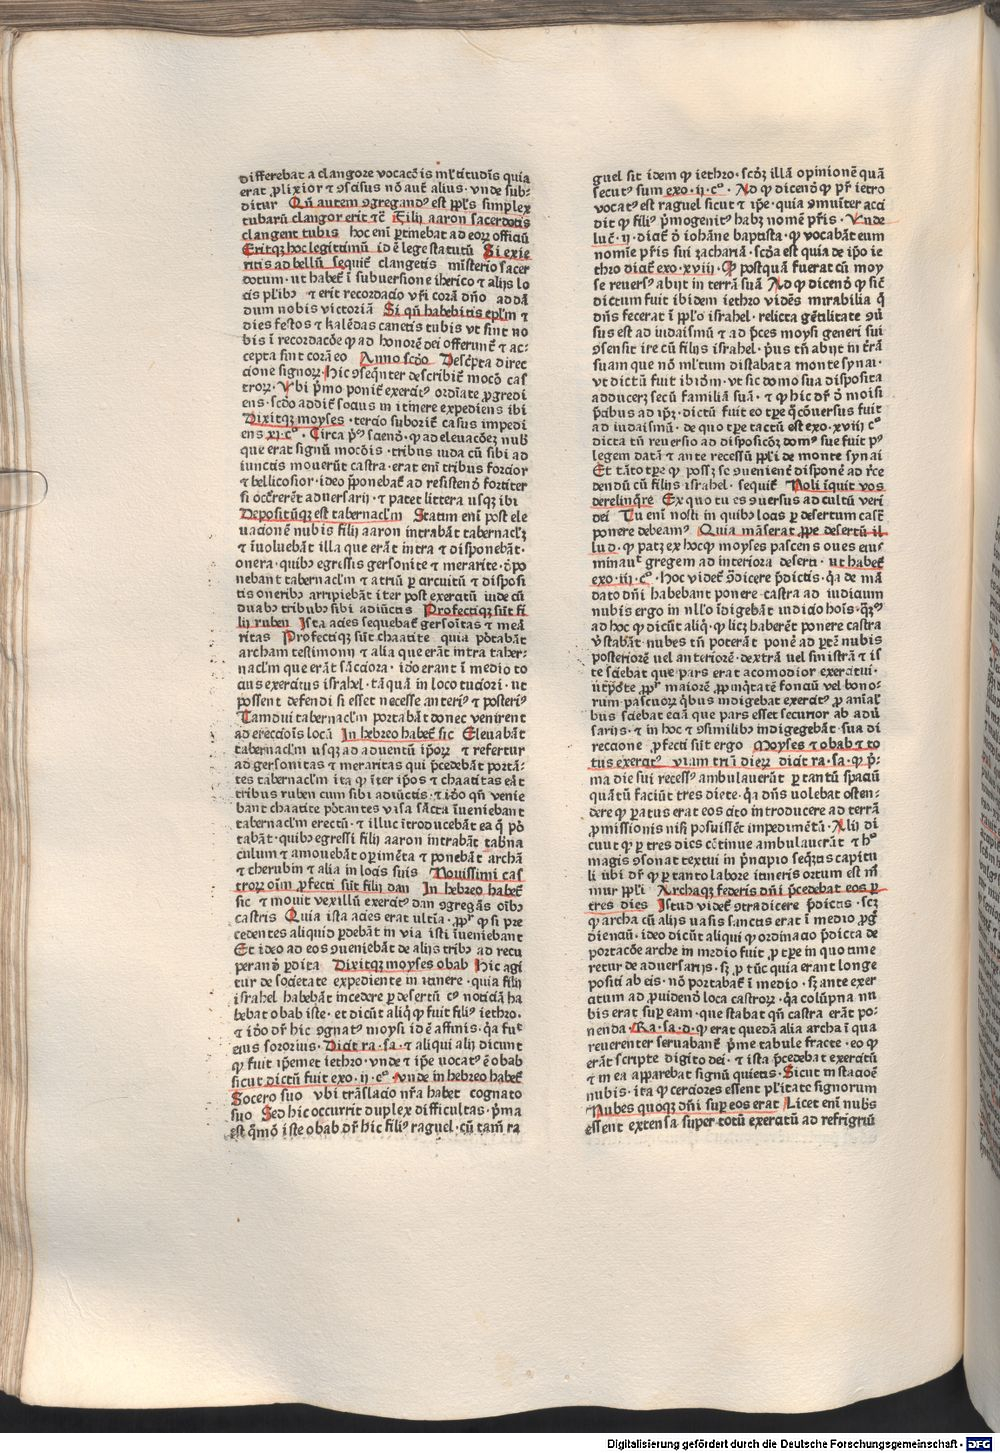 differebat a clangore vocacōis ml̄titudīs quia
erat ꝓlixior ⁊ ꝯscisus nō aut̄ alius · vnde sub-
ditur Qn̄ autem ꝯgregandꝰ est ppl̄s simplex
tubarū clangor erit ⁊c̄ Filij aaron sacerdotis
clangent tubis hoc enī ꝑtinebat ad eorꝝ officiū
Eritqꝫ hoc legittimū id ē lege statutū Si exie
ritis ad bellū sequit̄ clangetis mīsterio sacer
dotum · ut habet̄ ī subuersione iherico ⁊ alijs lo
cis pl̄ibꝰ ⁊ erit recordacio vr̄i corā dn̄o ad dā
dum nobis victoriā Si qn̄ habebitis epl̄m ⁊
dies festos ⁊ kalēdas canetis tubis vt sint no
bis ī recordacōe qꝫ ad honorē dei offerunt̄ ⁊ ac-
cepta sint corā eo Anno scd̄o Descp̄ta direc
cione signorꝝ hic ꝯseqn̄ter describit̄ mocō cas
trorꝝ · Vbi pͥmo ponit̄ exercitꝰ ordīate ꝓgredi
ens · scd̄o addit̄ socius in itinere expediens ibi
Dixitqꝫ moyses · tercio subori̇t̄ casus impedi
ens xi · cº · Circa pͥmū sciend̄ · qꝫ ad eleuacōeꝫ nub̄
que erat signū mocōis · tribus iuda cū sibi ad
iunctis mouerūt castra · erat enī tribus forcior
⁊ bellicosior · ideo pͥponebat̄ ad resistend̄ fortiter
si occͥreret aduersarij · ⁊ patet littera usqꝫ ibi
Depositūqꝫ est tabernacl̄m Statim enī post ele
uacionē nubis filij aaron intrabāt tabernacl̄ꝫ
⁊ īuoluebāt illa que erāt intra ⁊ disponebāt ·
onera · quibꝰ egressis gersonite ⁊ merarite · d̄po
nebant tabernacl̄m ⁊ atriū ꝑ circuitū ⁊ disposi
tis oneribꝰ arripiebāt iter post exercitū iude cū
duabꝰ tribubꝰ sibi adiūctis Profectiqꝫ sūt fi
lij ruben Ista acies sequebat̄ gersoītas ⁊ mea
ritas Profectiqꝫ sūt chaatite quia pōtabāt
archam testimonij ⁊ alia que erāt intra taber-
nacl̄m que erāt sāctiora · iđo erant ī medio to
cius exercitus israhel · tāquā in loco tuciori · ut
possent defendi si esset necesse anteriꝰ ⁊ posteriꝰ
Tamdiu tabernacl̄m portabāt donec venirent
ad ereccōis locū In hebreo habet̄ sic Eleuabāt
tabernacl̄m usqꝫ ad aduentū ip̄orꝝ ⁊ refertur
ad gersonitas ⁊ meraritas qui p̄cedebāt portā-
tes tabernacl̄m ita qꝫ īter ip̄os ⁊ chaatitas eāt
tribus ruben cum sibi adiūctis · ⁊ iđo qn̄ venie
bant chaatite pōtantes vasa sācta īueniebant
tabernacl̄m erectū · ⁊ illuc ītroducebāt ea qͣ pō
tabāt · quibꝰ egressi filij aaron intrabāt tab̄na
culum ⁊ amouebāt oꝑimēta ⁊ ponebāt archā
⁊ cherubin ⁊ alia in locis suis Nouissimi cas
trorꝝ oīm ꝓfecti sūt filij dan In hebreo habet̄
sic ⁊ mouit vexillū exercitꝰ dan ꝯgregās oībꝰ
castris Quia ista acies erat ultīa · ꝓpꝫ qꝫ si pre
cedentes aliquid ꝑdebāt in via isti īueniebant
Et ideo ad eos ꝯueniebāt de alijs tribꝰ ad recu
perand̄ ꝑdita Dixitqꝫ moyses obab Hic agi
tur de societate expediente in itinere · quia filij
israhel habebāt incedere ꝑ desertū cꝰ noticiā ha
bebat obab iste · et dicūt aliqͥ qꝫ fuit filiꝰ iethro ·
⁊ iđo dr̄ hic ꝯgnatꝰ moysi id ē affinis · qͣ fuͭ
eius sororius · Dicit ra · sa · ⁊ aliqui alij dicunt
qꝫ fuit ip̄emet iethro · vnde ⁊ ip̄e vocatꝰ ē obab
sicut dictū fuit exo · ij · cº · vnde in hebreo habet̄
Socero suo vbi trāslacio nr̄a habet cognato
suo Sed hic occurrit duplex difficultas · pͥma
est qͦmō iste obab dr̄ hic filiꝰ raguel · cū tam̄ ra
guel sit idem qꝫ iethro · scd̄ꝫ illā opinionē quā
secutꝰ sum exo · ij · cº · Ad qꝫ dicend̄ qꝫ pr̄ ietro
vocatꝰ est raguel sicut ⁊ ip̄e · quia ꝯmuīter acci
dit qꝫ filiꝰ pͥmogenitꝰ habꝫ nomē pr̄is · Vnde
luc̄ · ij · dicit̄ d̄ iohāne baptista · qꝫ vocabāt eum
nomīe pr̄is sui zachariā · scd̄a est quia de ip̄o ie
thro dicit̄ exo · xviij · Qꝫ postquā fuerat cū moy
se reuersꝰ abijt in terrā suā Ad qꝫ dicend̄ qꝫ sic̄
dictum fuit ibidem iethro vidēs mirabilia qͣ
dn̄s fecerat ī ppl̄o israhel · relicta gētilitate ꝯū
sus est ad iudaismū ⁊ ad p̄ces moysi generi sui
ꝯsensit ire cū filijs israhel · pͥus tn̄ abijt in tr̄ā
suam que nō ml̄tum distabat a monte synai ·
vt dictū fuit ibiđm · vt sic domo sua disposita
adduceret secū familiā suā · ⁊ qꝫ hic dr̄ d̄ moisi
p̄cibus ad ip̄ꝫ · dictū fuit eo tꝑe qͦ cōuersus fuit
ad iudaismū · de quo tꝑe tactū est exo · xviij cº
dicta tn̄ reuersio ad disposicōꝫ domꝰ sue fuit pꝰ
legem datā ⁊ ante recessū ppl̄i de monte synai
Et tāto tꝑe qꝫ possꝫ se ꝯuenient̄ disponē ad r̄ce
dendū cū filijs israhel · sequit̄ Noli īquit nos
derelinqͦre Ex quo tu es ꝯuersus ad cultū veri
dei Tu enī nosti in quibꝰ locis ꝑ desertum castͣ
ponere debeamꝰ Quia māserat ꝓpe desertū il
lud · qꝫ patꝫ ex hoc qꝫ moyses pascens oues eiuꝰ
minauͭ gregem ad interiora deserti · ut habet̄
exo · iii · cº · hoc videt̄ ꝯdicere p̄dictis · qͣ de mā
dato dn̄i habebant ponere castra ad iudicium
nubis ergo in nl̄lo īdigebāt iudicio hoīs · qͣꝫꝰ
ad hoc qꝫ dicūt aliqͥ · qꝫ licꝫ haberēt ponere castra
vꝰ stabāt nubes tn̄ poterāt ponē ad ꝑtē nubis
posteriorē uel anteriorē · dextrā uel sinistrā ⁊ is
te sciebat que pars erat acomodior exercitui ·
utpōte ꝓpꝫ maiorē ꝓpīqͥtatē fonciū vel bono-
rum pascuorꝝ qͥbus indigebat exercitꝰ ꝓ aīalꝰ
bus sciebat eciā que pars esset securior ab adū
sarijs · ⁊ in hoc ⁊ ꝯsimilibꝰ indigegebāt · sua di
reccione ꝓfecti sūt ergo Moyses ⁊ obab ⁊ to
tus exercitꝰ viam triū dierꝝ dicit ra · sa · qꝫ pͥ-
ma die sui recessꝰ ambulauerūt ꝑ tantū spaciū
quātū faciūt tres diete · qͣ dn̄s uolebat osten-
dere qꝫ ꝑatus erat eos cito introducere ad terrā
ꝓmissionis nisi posuissēt impedimētū · Alij di
cuut qꝫ ꝑ tres dies cōtinue ambulauerūt ⁊ hͦ
magis ꝯsonat textui in pͥncipio seqͣtis capitu
li ubi dr̄ qꝫ ꝑ tanto labore itineris ortum est m̄
mur ppl̄i Archaqꝫ federis dn̄i p̄cedebat eos ꝑ
tres dies Istud videt̄ ꝯtradicere p̄dictis · scꝫ
qꝫ archa cū alijs uasis sanctus erat ī medio ꝓḡ
dienciū · ideo dicūt aliqui qꝫ ordinacio p̄dicta de
portacōe arche in medio fuit ꝓ tꝑe in quo time
retur de aduersarijs · sꝫ ꝓ tūc quia erant longe
positi ab eis · nō portabat̄ ī medio · sꝫ ante exer
citum ad ꝓuidend̄ loca castrorꝝ · qͣ colūpna nu
bis erat suꝑ eam · que stabat qn̄ castra erāt po-
nenda · Ra · sa · d · qꝫ erat quedā alia archa ī qua
reuerenter seruabant̄ pͥme tabule fracte · eo qꝫ
erāt scripte digito dei · ⁊ ista p̄cedebat exercitū
⁊ in ea apparebat signū quietis · Sicut in stacōe
nubis · ita qꝫ cerciores essent pl̄itate signorum
Nubes quoqꝫ dn̄i suꝑ eos erat Licet enī nubs
essent extensa super totū exercitū ad refrigriū
Digitalisierung gefördert durch die Deutsche Forschungsgemeinschaft - DFG